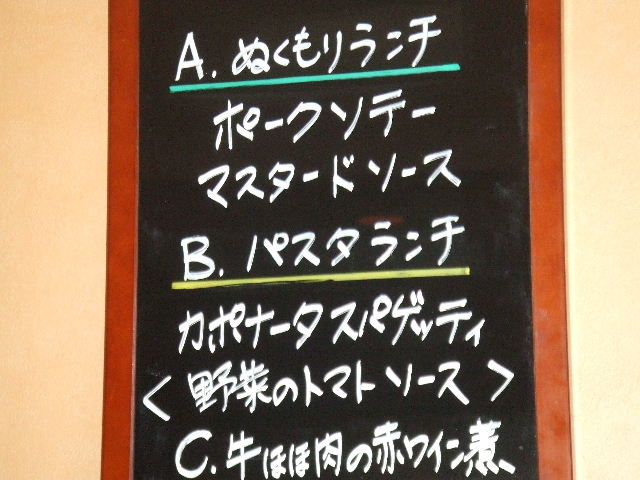 A. ぬくもりランチ
ポークソテー
マスタードソース
B. パスタランチ
カポナータスパゲッティ
<野菜のトマトソース>
C. 牛ほほ肉の赤ワイン煮